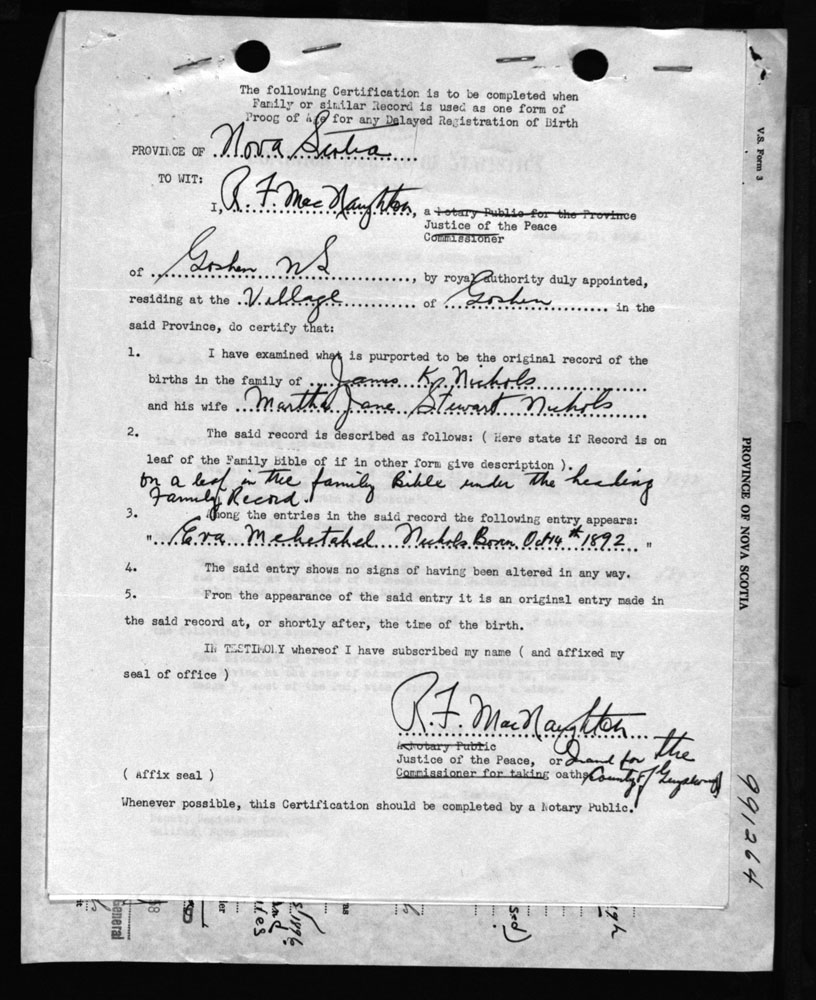 The following Certification is to be completed when
Family or similar Record is used as one form of
Proog of Age for any Delayed Registration of Birth
PROVINCE OF Nova Scotia
TO WIT:
I, R. F. MacNaughton, a Notary Public for the Province
Justice of the Peace
Commissioner
of Goshen NS, by royal authority duly appointed,
residing at the Village of Goshen in the
said Province, do certify that:
1. I have examined what is purported to be the original record of the
births in the family of James K. Nichols
and his wife Martha Jane Stewart Nichols
2. The said record is described as follows: ( Here state if Record is on
leaf of the Family Bible of if in other form give description ).
on a leaf in the family Bible under the heading
Family Record.
3. Among the entries in the said record the following entry appears:
" Eva Mehetabel Nichols Born Oct 14th 1892 "
4. The said entry shows no signs of having been altered in any way.
5. From the appearance of the said entry it is an original entry made in
the said record at, or shortly after, the time of the birth.
IN TESTIMONY whereof I have subscribed my name ( and affixed my
seal of office )
R. F. MacNaughton
A Notary Public
Justice of the Peace, or in and for the
Commissioner for taking oaths County of Guysborough
( Affix seal )
Whenever possible, this Certification should be completed by a Notary Public.
V.S. Form 3
PROVINCE OF NOVA SCOTIA
991264
General
1896